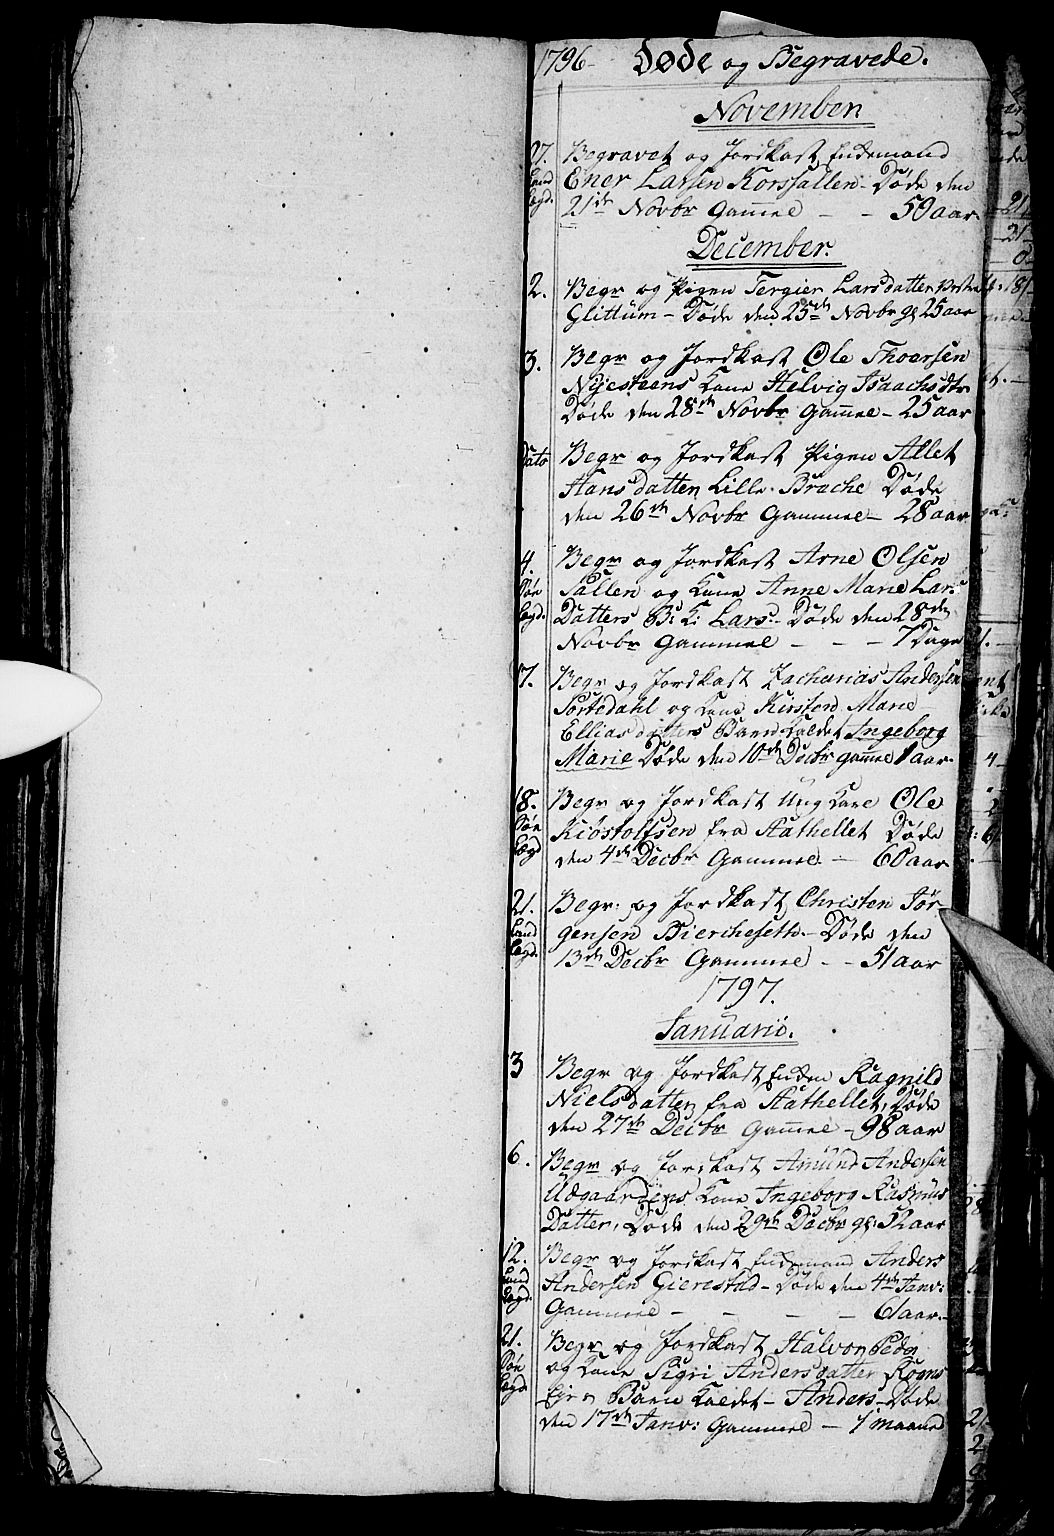 1796 - Døde og Begravede.
November
27. Begravet og Jordkast Enkemand
Land Ener Larsen Korssallen - Døde den
Lægd. 21de Novbr Gammel - - 50 aar.
December.
2. Begr og Pigen Tergier Larsdatter
Glittum - Døde den 25de Novbr gl 25 aar
3. Begr og Jordkast Ole Thoersen
Nyesteens Kone Helvig Isaachsdtr
Døde den 28de Novbr Gammel - 25 aar
Dato Begr og Jordkast Pigen Allet
Hansdatter Lille-Brache Døde
den 26de Novbr Gammel - 28 aar
4. Begr og Jordkast Arne Olsen
Søn Sallen og Kone Anne Marie Lars
Lægd. Datters B: K: Lars - Døde den 28de
Novbr Gammel - - - 7 Dage
17. Begr og Jordkast Zacharias Andersen
Portedahl og Kone Kirsten Marie
Elliasdatters Barn kaldet Ingeborg
Marie Døde den 10de Decbr gammel 1 aar.
18. Begr og Jordkast Ung Karl Ole
Søn Kiøstolfsen fra Aathellet Døde
Lægd den 4de Decbr Gammel. - 60 aar
21. Begr. og Jordkast Christen Jør
Land gensen Bierchesette. - Døde den
Lægd. 13de Decbr Gammel - - 51 aar
1797.
Januarii.
3 Begr og Jordkast Enken Ragnild
Nielsdatter fra Aathellet, Døde
den 27de Decbr Gammel - 98 aar
6. Begr og Jordkast Amund Andersen
Udgaardens Kone Ingeborg Rasmus
Datter, Døde den 29de Decbr gl: 52 aar
12. Begr og Jordkast Enkemand Anders
Land Andersen Gierestad - Døde den 4de Janv:
Lægd. Gammel - - - - 61 aar. -
21. Begr og Jordkast Halvor Peder
Søn og Kone Sigri Andersdatter Rogns
Lægd Barn kaldet - Anders - Døde
den 17de Janv: Gammel - 1 maaned